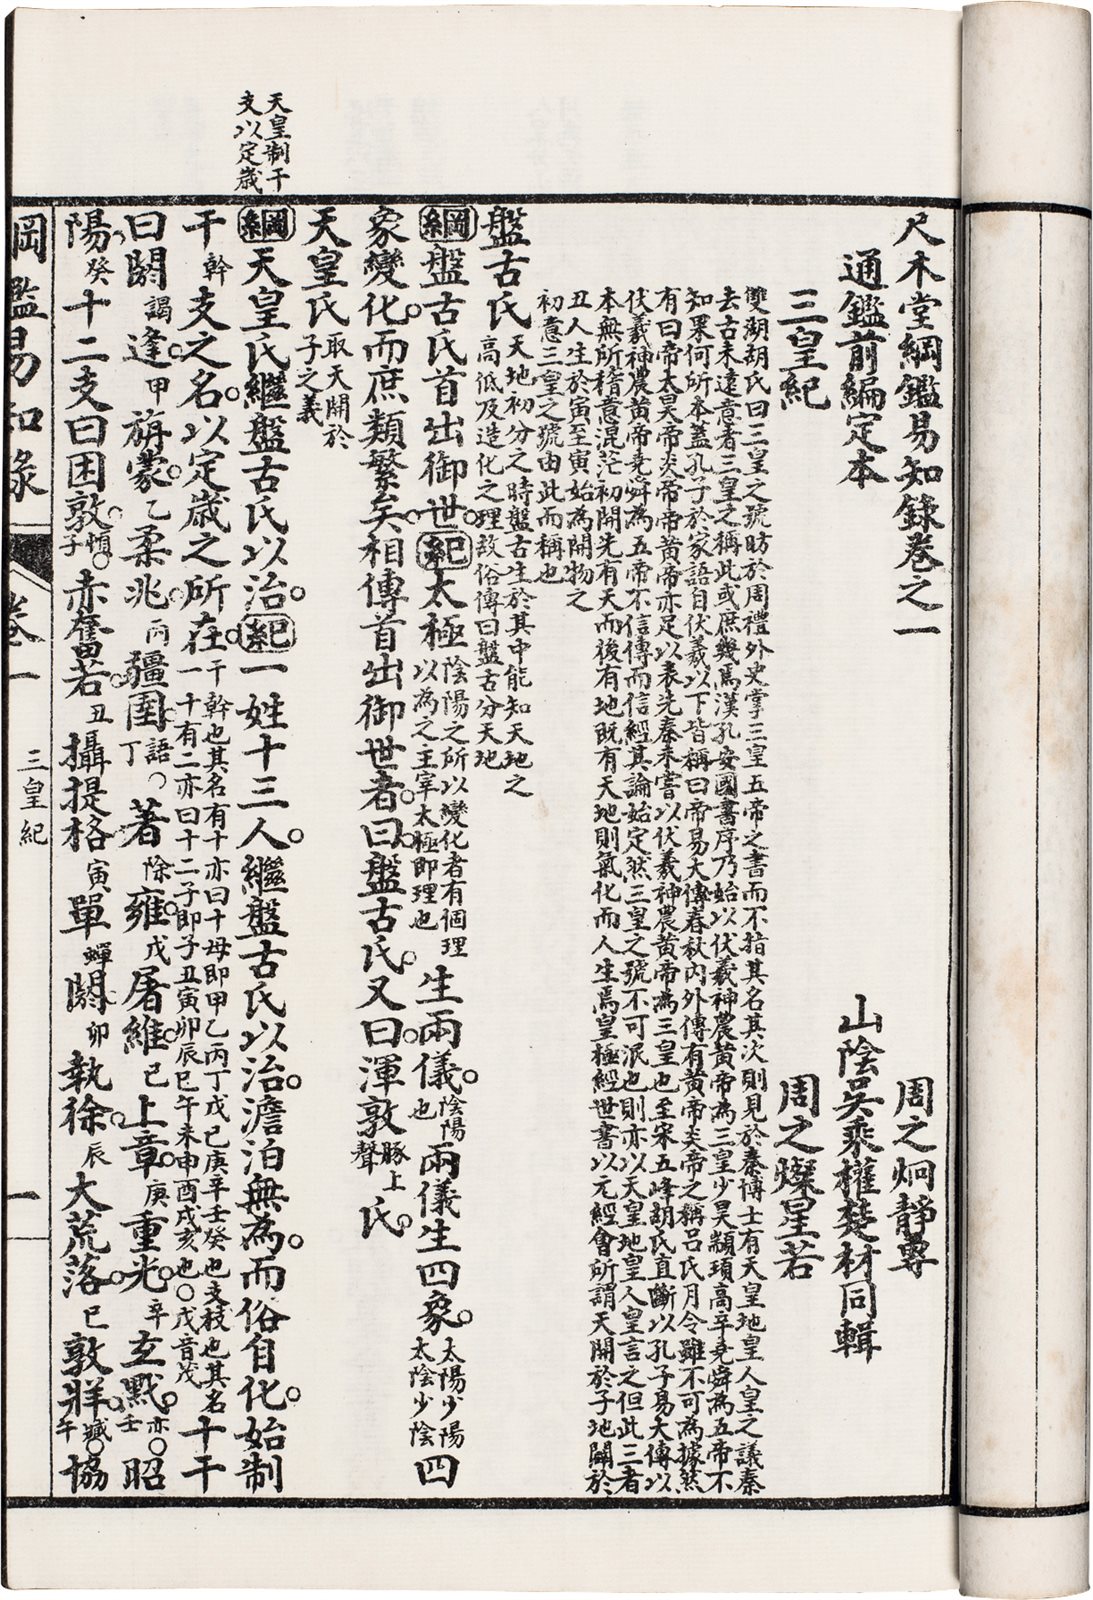 尺木堂綱鑑易知錄卷之一
周之炯靜專
通鑑前編定本
山陰吳乘權楚材同輯
周之燦星若
三皇紀
雙湖胡氏曰三皇之號昉於周禮外史掌三皇五帝之書而不指其名其次則見於秦博士有天皇地皇人皇之議秦
去古未遠意者三皇之稱此或庶幾焉漢孔安國書序乃始以伏羲神農黃帝為三皇少昊顓頊高辛堯舜為五帝不
知果何所本蓋孔子於家語自伏羲以下皆稱曰帝易大傳春秋內外傳有黃帝炎帝之稱呂氏月令雖不可為據然
有曰帝太昊帝炎帝帝黃帝亦足以表先秦未嘗以伏羲神農黃帝為三皇也至宋五峰胡氏直斷以孔子易大傳以
伏羲神農黃帝堯舜為五帝不信傳而信經其論始定然三皇之號不可泯也則亦以天皇地皇人皇言之但此三者
本無所稽意混茫初開先有天而後有地既有天地則氣化而人生焉皇極經世書以元經會所謂天開於子地闢於
丑人生於寅至寅始為開物之
初意三皇之號由此而稱也
盤古氏 天地初分之時盤古生於其中能知天地之
高低及造化之理故俗傳曰盤古分天地
綱 盤古氏首出御世。紀 太極 陰陽之所以變化者有個理
以為之主宰太極即理也 生兩儀。陰陽
也 兩儀生四象。太陽少陽
太陰少陰 四
象變化。而庶類繁矣。相傳首出御世者。曰盤古氏。又曰。渾敦 豚上
聲 氏。
天皇氏 取天開於
子之義
天皇制干
支以定歲
綱 天皇氏繼盤古氏以治。紀 一姓十三人。繼盤古氏以治。澹泊無為。而俗自化。始制
干 幹 支之名。以定歲之所在。干幹也其名有十亦曰十母即甲乙丙丁戊己庚辛壬癸也支枝也其名
一十有二亦曰十二子即子丑寅卯辰巳午未申酉戌亥也○戊音茂 十干
曰閼 謁 逢。甲 旃蒙。乙 柔兆。丙 彊圉。語○
丁 著 除 雍。戊 屠維。己 上章。庚 重光。辛 玄黓。亦○
壬 昭
陽。癸 十二支曰困敦。頓○
子 赤奮若。丑 攝提格 寅 單 蟬 閼。卯 執徐。辰 大荒落。巳 敦牂。臧○
午 協
綱鑑易知錄 卷一 三皇紀 一